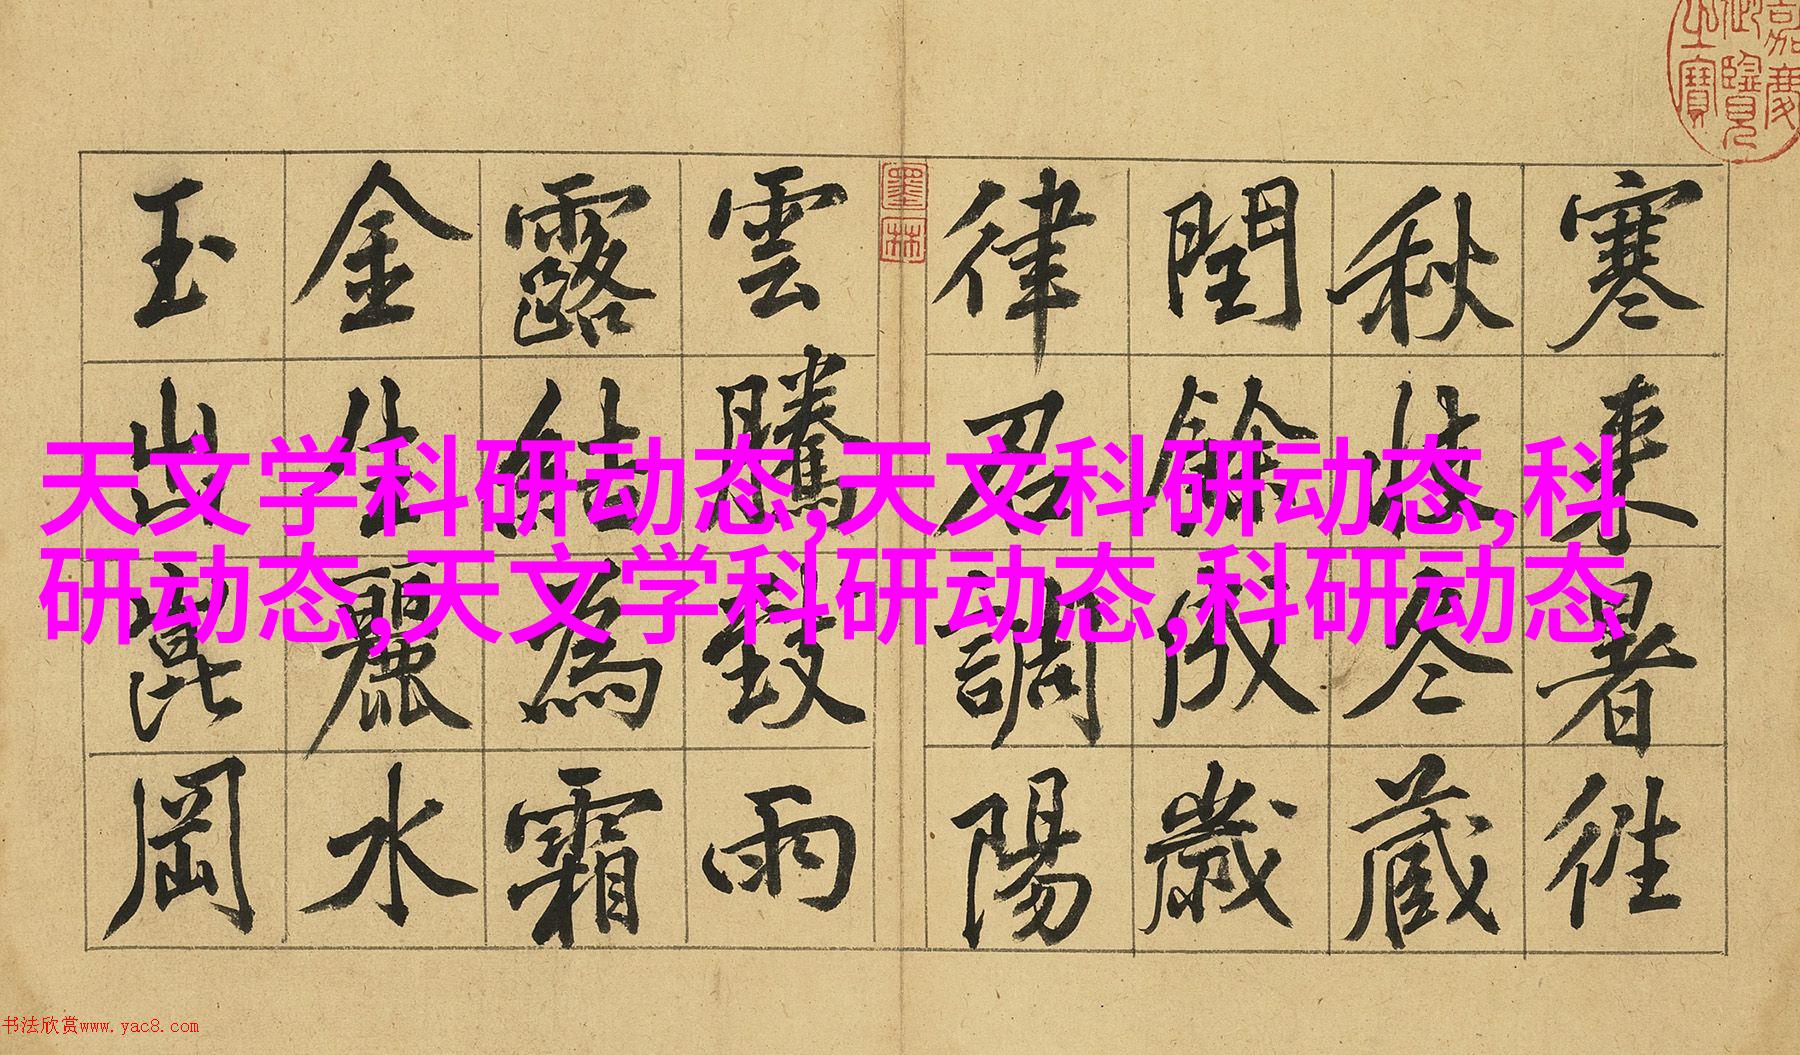 天文学科研动态,天文科研动态,科
研动态,天文学科研动态,科研动态
寒来暑往
秋收冬藏
閏餘成歲
律召調陽
雲騰致雨
露結為霜
金生麗水
玉出崑岡
嘉慶御覽之寶
墨林
书法欣赏www.yac8.com